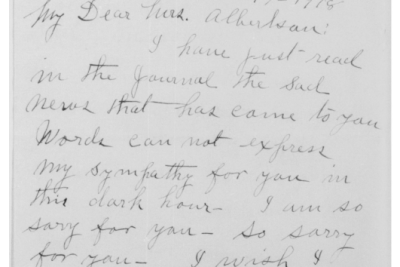 My Dear Mrs. Albertson:
I have just read
in the Journal the sad
news that has come to you
Words can not express
my sympathy for you in
this dark hour— I am so
sorry for you— so sorry
for you— I wish I